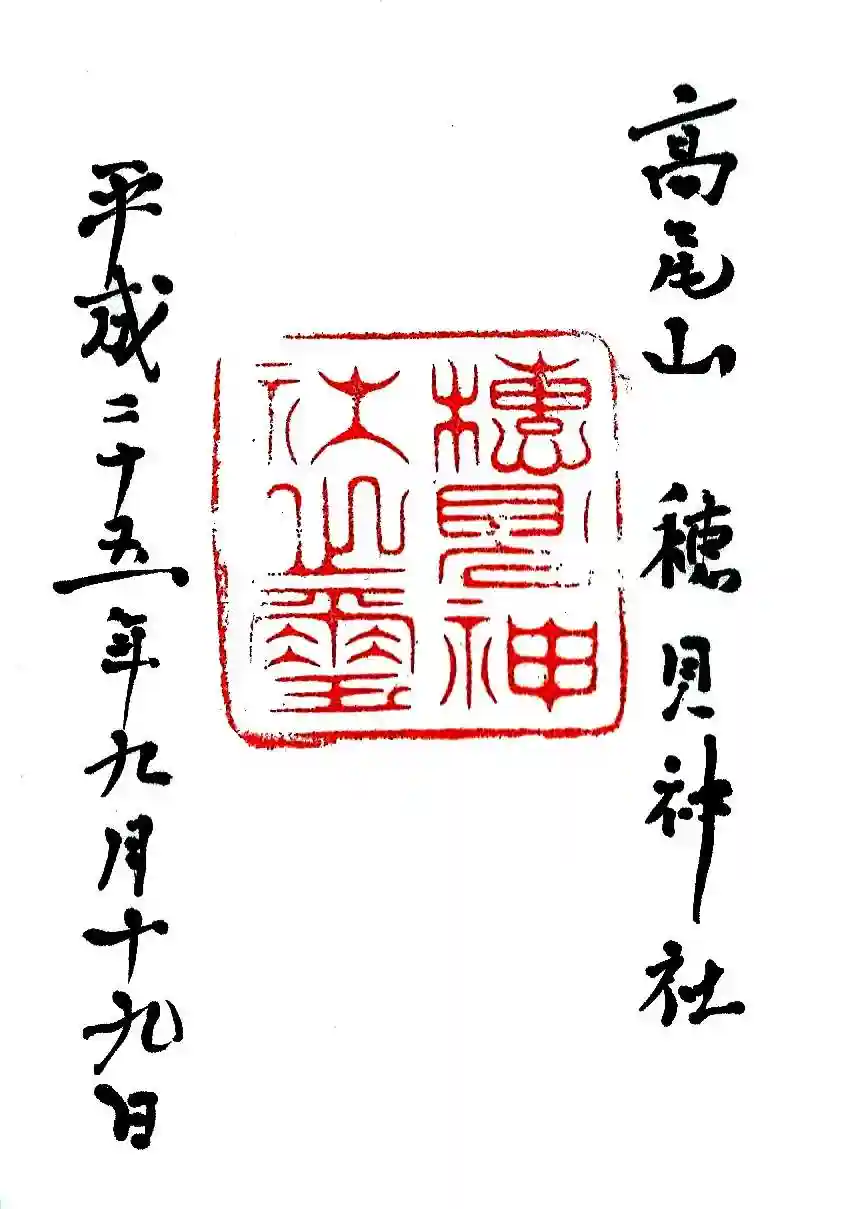 高尾山 穂見神社
穂見神
社之璽
平成二十五年九月十九日